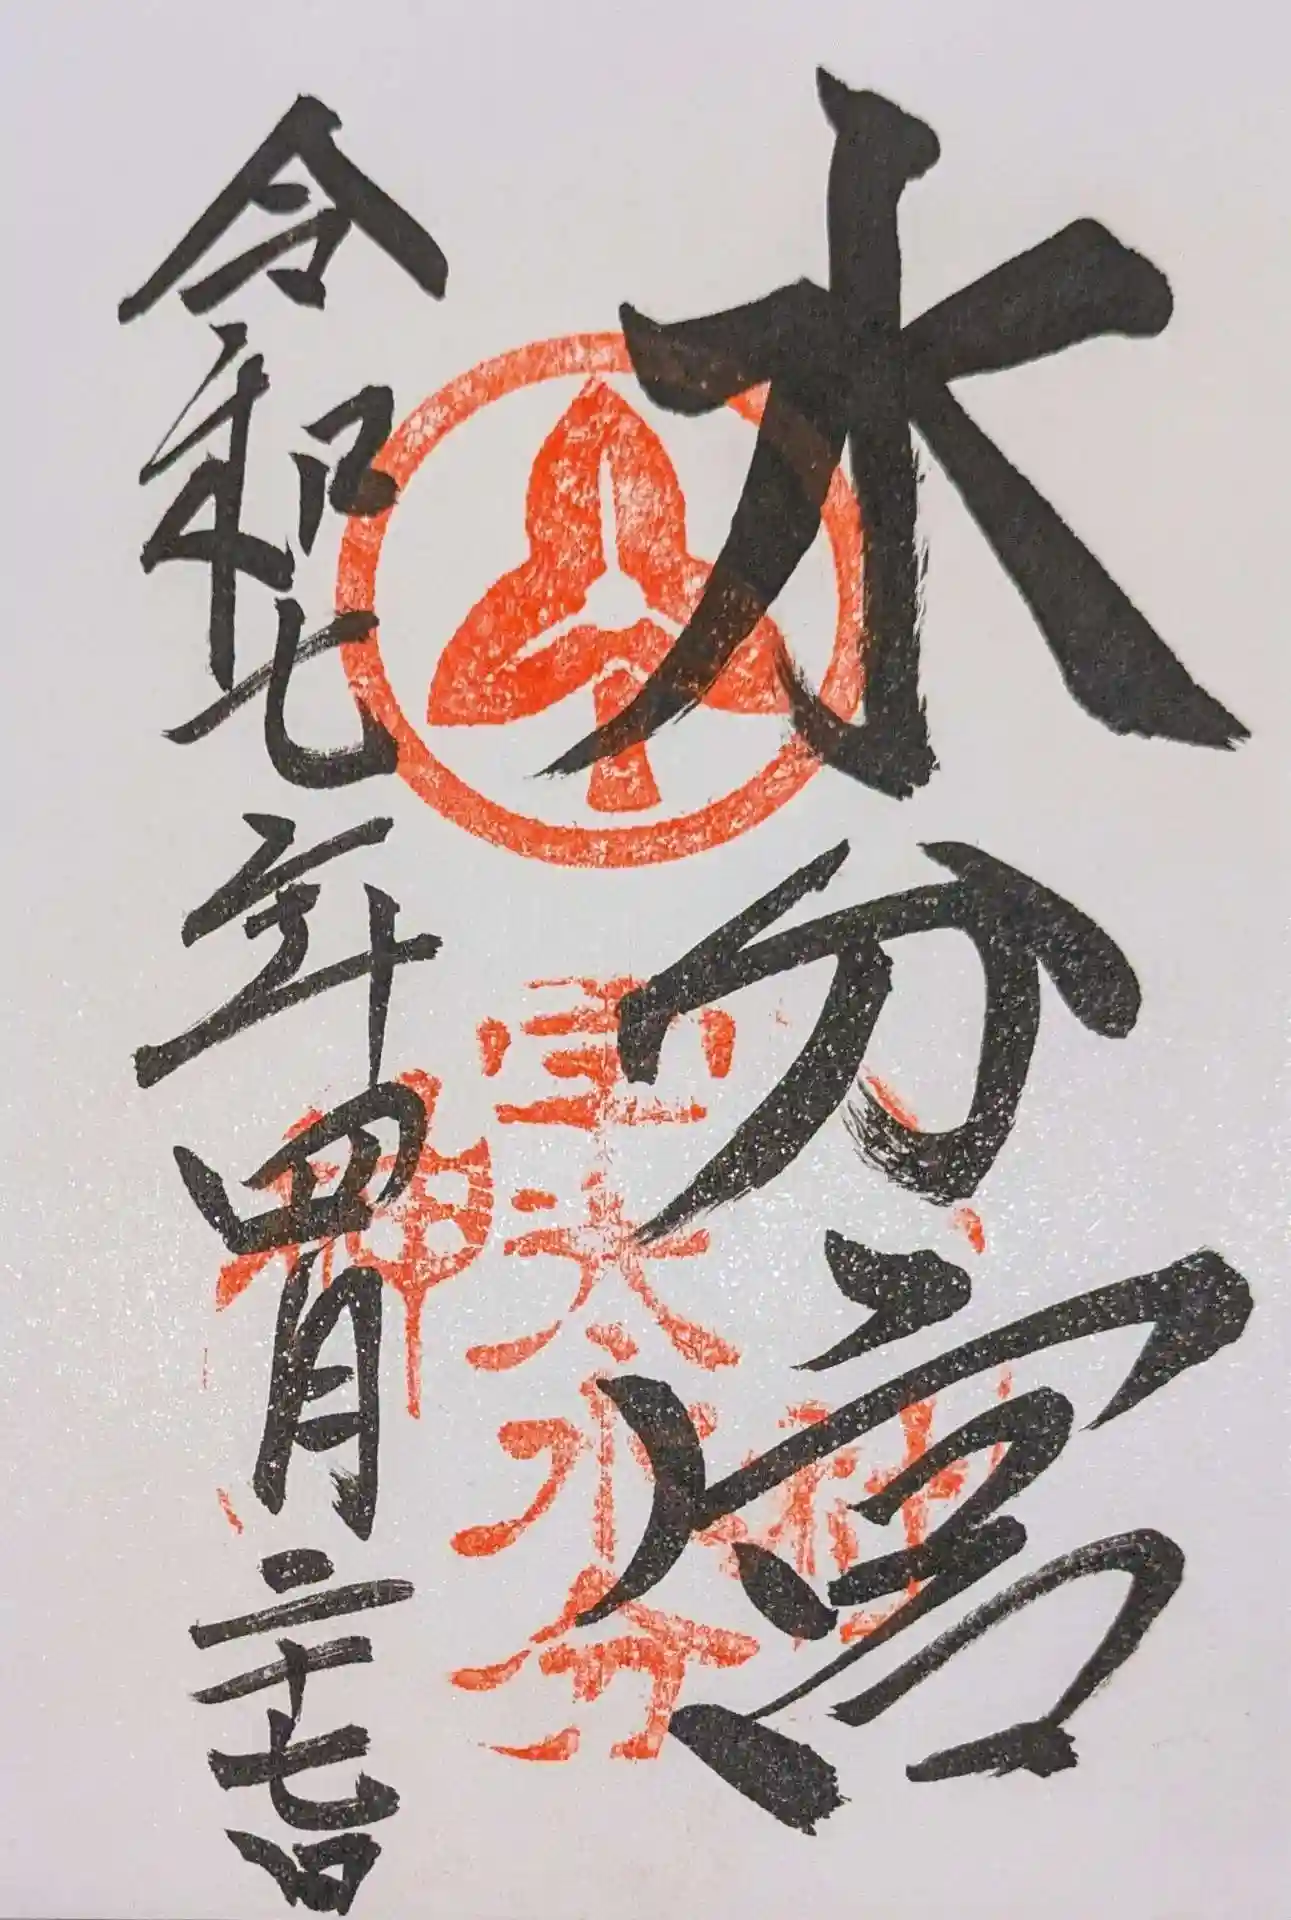 水分宮
水分
神
令和七年四月二十七日